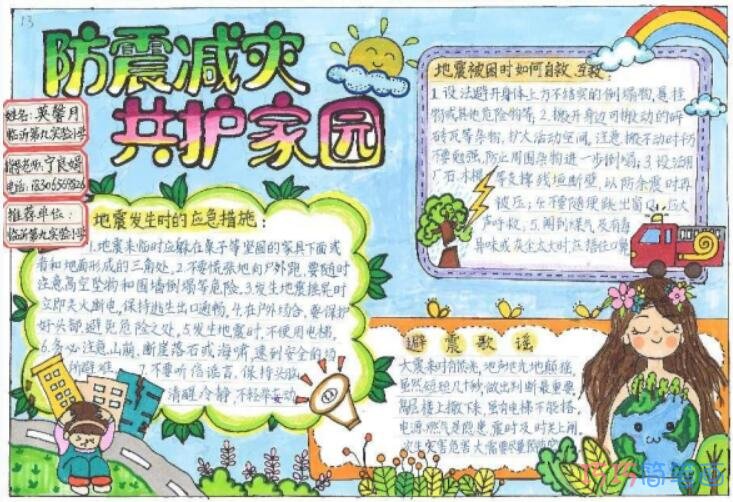 13
防震减灾
共护家园
姓名：英馨月
临沂第九实验小学
指导老师：宁良娟
电话：18306569826
推荐单位：
临沂第九实验小学
地震发生时的应急措施：
1.地震来临时应躲在桌子等坚固的家具下面或
者和地面形成的三角处，2.不要慌张地向户外跑，要随时
注意高空坠物和围墙倒塌等危险，3.发生地震摇晃时
立即灭火断电，保持逃生出口通畅，4.在户外场合，要保护
好头部避免危险之处，5.发生地震时，不使用电梯，
6.务必注意山崩、断崖落石或海啸，速到安全的场
所避难 7.不要听信谣言，保持头脑
清醒冷静，不轻举妄动
地震被困时如何自救、互救：
1.设法避开身体上方不结实的倒塌物，悬挂
物或其他危险物等，2.搬开身边可搬动的碎
砖瓦等杂物，扩大活动空间，注意，搬不动时千万
不要勉强，防止周围杂物进一步倒塌，3.设法用
石 木棍 等支撑残垣断壁，以防余震时再
被压；4.不要随便跳出窗口，大
声呼救，5.闻到煤气及有毒
异味或灰尘太大时，捂住口鼻
避震歌谣
大震来时有
虽然短短几十秒，做出判断最重要，
高层楼上撤下来，虽有电梯不能搭，
电源、燃气是隐患，震时及时关上阀，